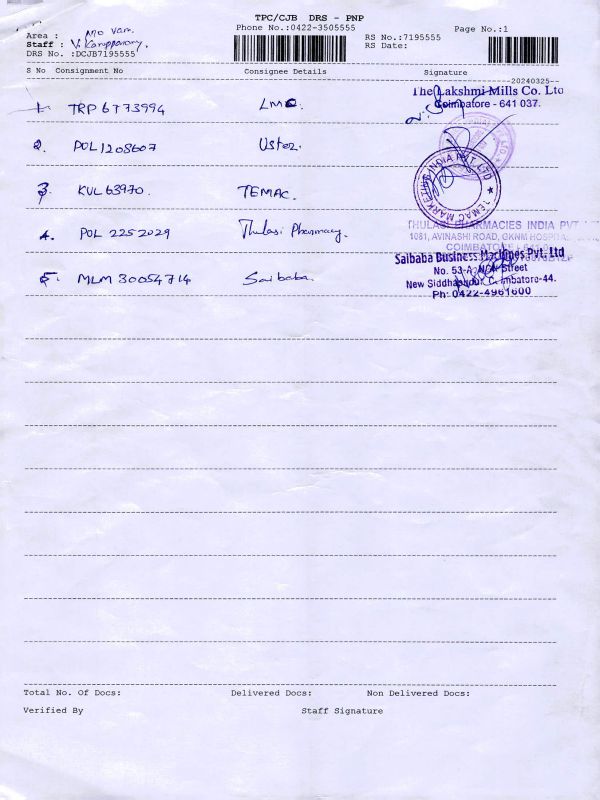 TPC/CJB DRS - PNP
Phone No.:0422-3505555
Page No.:1
Area : M/o Van.
RS No.:7195555
Staff : V. Karupasamy.
RS Date:
DRS No. :DCJB7195555
S No Consignment No Consignee Details Signature
--20240325--
The Lakshmi Mills Co. Ltd
Coimbatore - 641 037.
1. TRP 6773994 LMC
2. POL 1208607 Uster.
3. KVL 63970. TEMAC.
TEMAC MARKETING INDIA PVT LTD
4. POL 2252029 Thulasi Pharmacy.
THULASI PHARMACIES INDIA PVT
1081, AVINASHI ROAD, GKNM HOSPITAL
COIMBATORE - 641 0
5. MLM 30054714 Saibaba.
Saibaba Business Machines Pvt. Ltd
No. 53-A, Street
New Siddhapudur, Coimbatore-44.
Ph: 0422-4961600
Total No. Of Docs: Delivered Docs: Non Delivered Docs:
Verified By Staff Signature